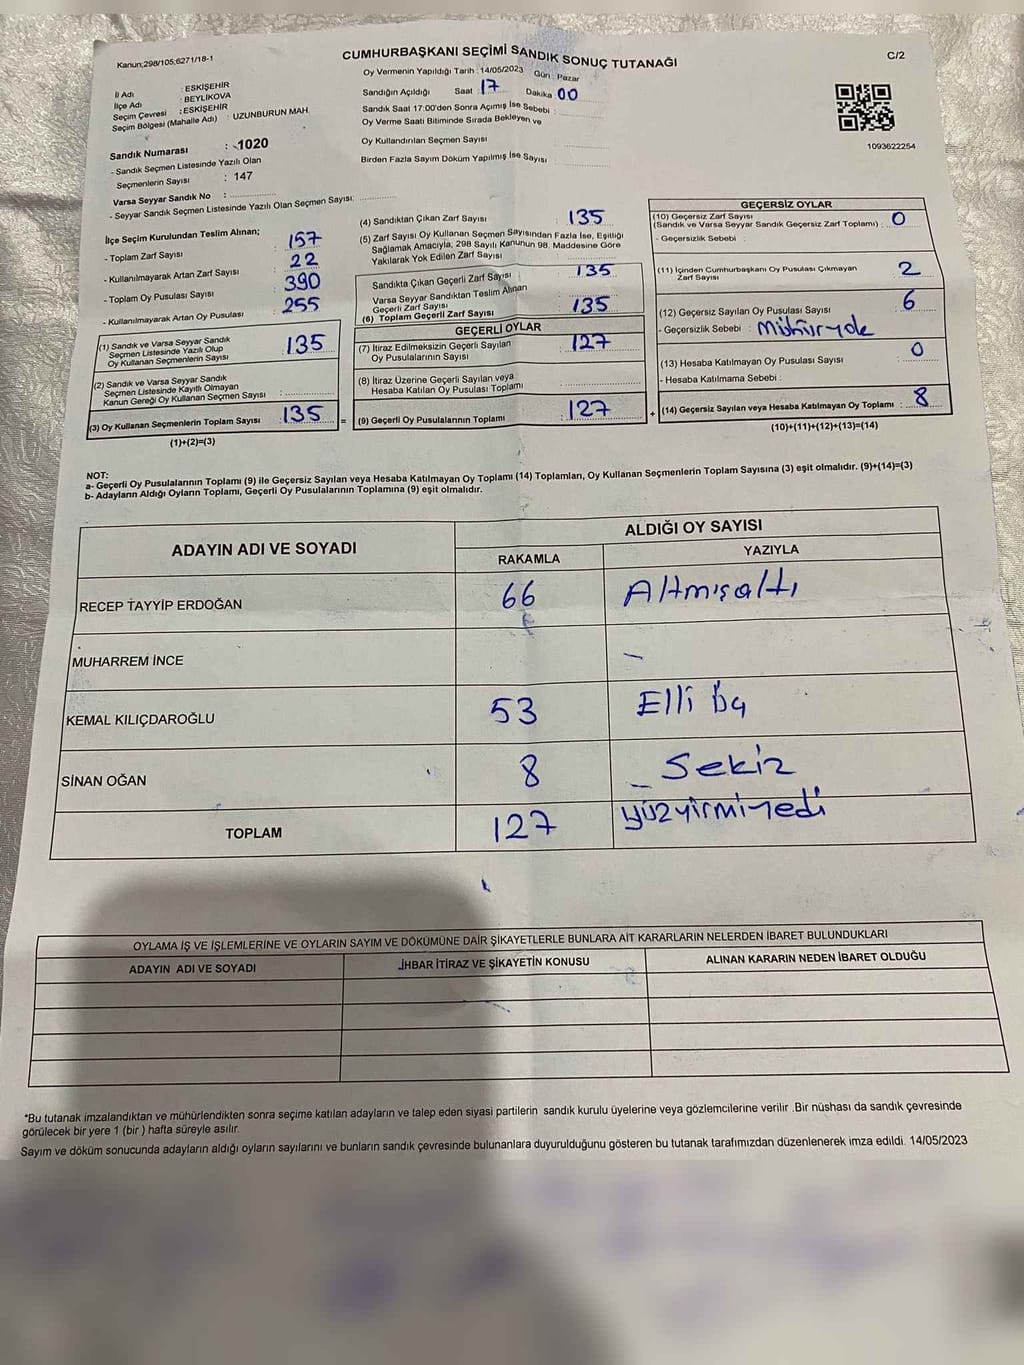 Kanun;298/105;6271/18-1
CUMHURBAŞKANI SEÇİMİ SANDIK SONUÇ TUTANAĞI
C/2
Oy Vermenin Yapıldığı Tarih : 14/05/2023 Gün : Pazar
İl Adı : ESKİŞEHİR
İlçe Adı : BEYLİKOVA
Seçim Çevresi : ESKİŞEHİR
Seçim Bölgesi (Mahalle Adı) : UZUNBURUN MAH.
Sandık Numarası : 1020
- Sandık Seçmen Listesinde Yazılı Olan
Seçmenlerin Sayısı : 147
Varsa Seyyar Sandık No :
- Seyyar Sandık Seçmen Listesinde Yazılı Olan Seçmen Sayısı:
Sandığın Açıldığı Saat 17 Dakika 00
Sandık Saat 17:00'den Sonra Açımış İse Sebebi :
Oy Verme Saati Bitiminde Sırada Bekleyen ve
Oy Kullandırılan Seçmen Sayısı
Birden Fazla Sayım Döküm Yapılmış İse Sayısı
1093622254
İlçe Seçim Kurulundan Teslim Alınan;
- Toplam Zarf Sayısı : 157
- Kullanılmayarak Artan Zarf Sayısı : 22
- Toplam Oy Pusulası Sayısı : 390
- Kullanılmayarak Artan Oy Pusulası : 255
(1) Sandık ve Varsa Seyyar Sandık
Seçmen Listesinde Yazılı Olup
Oy Kullanan Seçmenlerin Sayısı : 135
(2) Sandık ve Varsa Seyyar Sandık
Seçmen Listesinde Kayıtlı Olmayan
Kanun Gereği Oy Kullanan Seçmen Sayısı :
(3) Oy Kullanan Seçmenlerin Toplam Sayısı : 135 =
(1)+(2)=(3)
(4) Sandıktan Çıkan Zarf Sayısı : 135
(5) Zarf Sayısı Oy Kullanan Seçmen Sayısından Fazla İse, Eşitliği
Sağlamak Amacıyla, 298 Sayılı Kanunun 98. Maddesine Göre
Yakılarak Yok Edilen Zarf Sayısı :
Sandıkta Çıkan Geçerli Zarf Sayısı : 135
Varsa Seyyar Sandıktan Teslim Alınan
Geçerli Zarf Sayısı
(6) Toplam Geçerli Zarf Sayısı : 135
GEÇERLİ OYLAR
(7) İtiraz Edilmeksizin Geçerli Sayılan
Oy Pusulalarının Sayısı : 127
(8) İtiraz Üzerine Geçerli Sayılan veya
Hesaba Katılan Oy Pusulası Toplamı :
(9) Geçerli Oy Pusulalarının Toplamı : 127 +
GEÇERSİZ OYLAR
(10) Geçersiz Zarf Sayısı
(Sandık ve Varsa Seyyar Sandık Geçersiz Zarf Toplamı) : 0
- Geçersizlik Sebebi :
(11) İçinden Cumhurbaşkanı Oy Pusulası Çıkmayan
Zarf Sayısı : 2
(12) Geçersiz Sayılan Oy Pusulası Sayısı : 6
- Geçersizlik Sebebi : Mühür yok
(13) Hesaba Katılmayan Oy Pusulası Sayısı : 0
- Hesaba Katılmama Sebebi :
(14) Geçersiz Sayılan veya Hesaba Katılmayan Oy Toplamı : 8
(10)+(11)+(12)+(13)=(14)
NOT:
a- Geçerli Oy Pusulalarının Toplamı (9) ile Geçersiz Sayılan veya Hesaba Katılmayan Oy Toplamı (14) Toplamları, Oy Kullanan Seçmenlerin Toplam Sayısına (3) eşit olmalıdır. (9)+(14)=(3)
b- Adayların Aldığı Oyların Toplamı, Geçerli Oy Pusulalarının Toplamına (9) eşit olmalıdır.
ADAYIN ADI VE SOYADI
ALDIĞI OY SAYISI
RAKAMLA YAZIYLA
RECEP TAYYİP ERDOĞAN 66 Altmışaltı
MUHARREM İNCE -
KEMAL KILIÇDAROĞLU 53 Elli
SİNAN OĞAN 8 Sekiz
TOPLAM 127 yüzyirmiyedi
OYLAMA İŞ VE İŞLEMLERİNE VE OYLARIN SAYIM VE DÖKÜMÜNE DAİR ŞİKAYETLERLE BUNLARA AİT KARARLARIN NELERDEN İBARET BULUNDUKLARI
ADAYIN ADI VE SOYADI İHBAR İTİRAZ VE ŞİKAYETİN KONUSU ALINAN KARARIN NEDEN İBARET OLDUĞU
*Bu tutanak imzalandıktan ve mühürlendikten sonra seçime katılan adayların ve talep eden siyasi partilerin sandık kurulu üyelerine veya gözlemcilerine verilir .Bir nüshası da sandık çevresinde
görülecek bir yere 1 (bir ) hafta süreyle asılır.
Sayım ve döküm sonucunda adayların aldığı oyların sayılarını ve bunların sandık çevresinde bulunanlara duyurulduğunu gösteren bu tutanak tarafımızdan düzenlenerek imza edildi. 14/05/2023